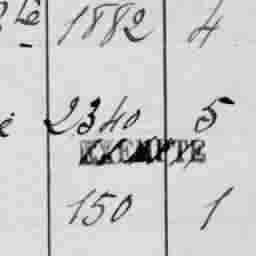 le 1882 4
2340 5
EXEMPTE
150 1